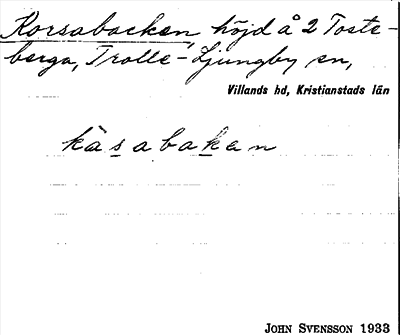 Korsabacken, höjd å 2 Toste-
berga, Trolle-Ljungby sn,
Villands hd, Kristianstads län
kåsabaken
JOHN SVENSSON 1933